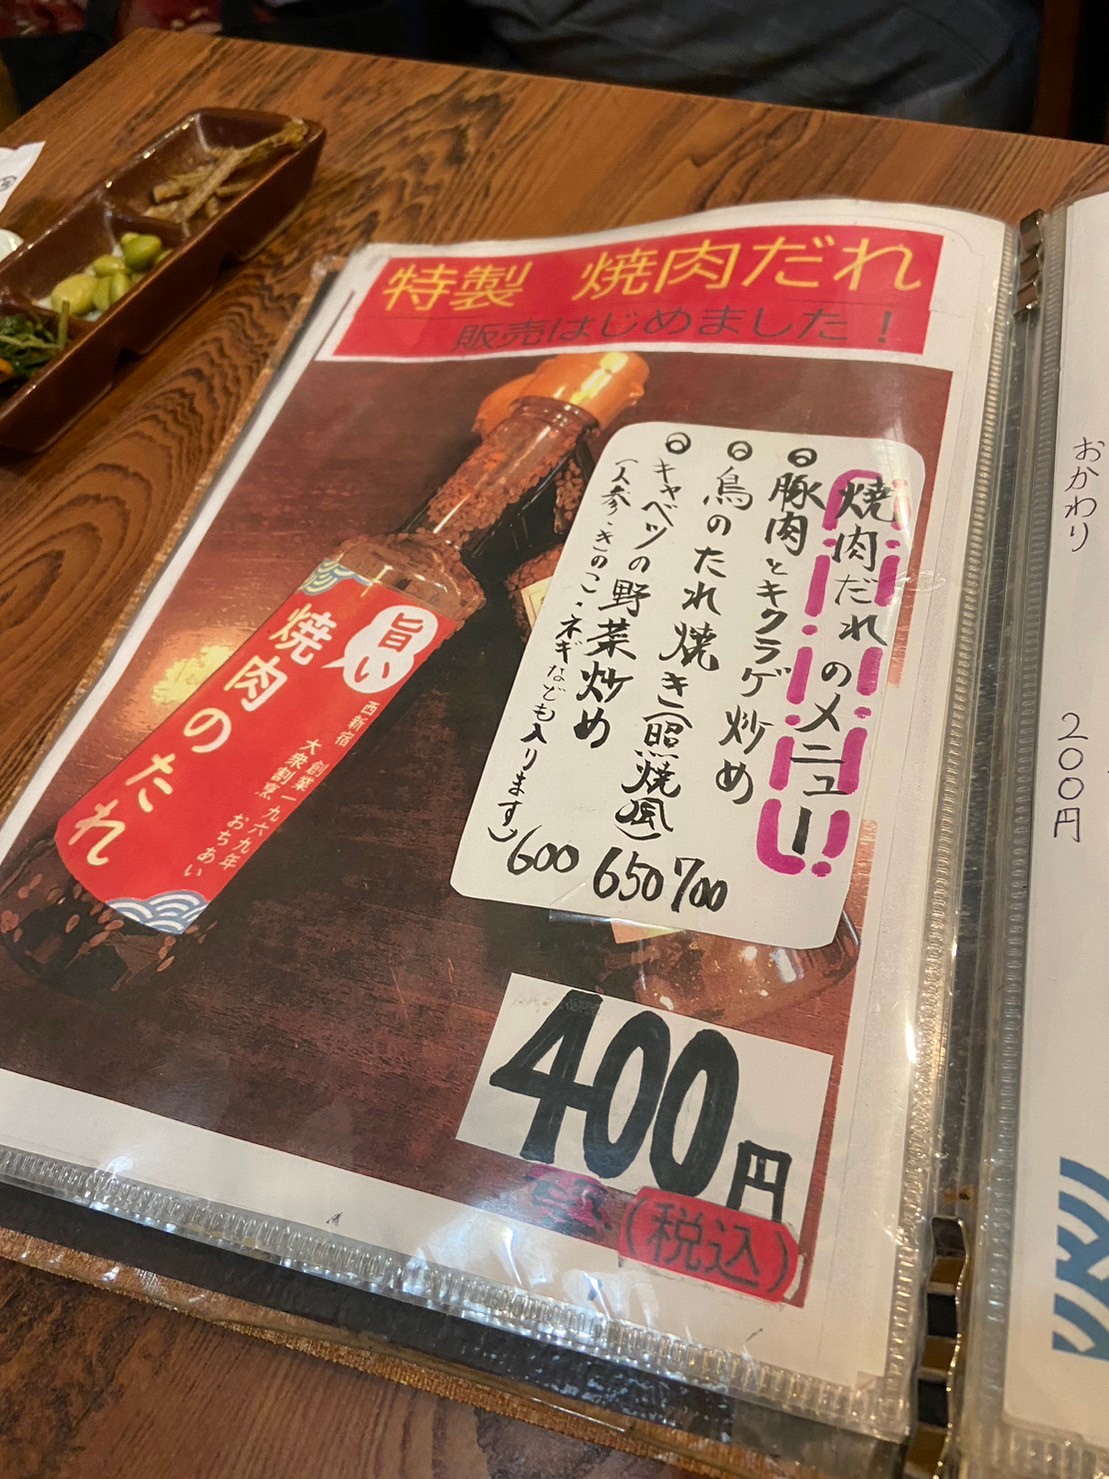 特製 焼肉だれ
販売はじめました！
焼肉だれのメニュー
豚肉とキクラゲ炒め 700
鳥のたれ焼き(照焼風) 650
キャベツの野菜炒め 600
(人参・きのこ・ネギなども入ります)
旨い
焼肉のたれ
西新宿 創業一九六九年
大衆割烹 おちあい
400円
(税込)
おかわり
200円